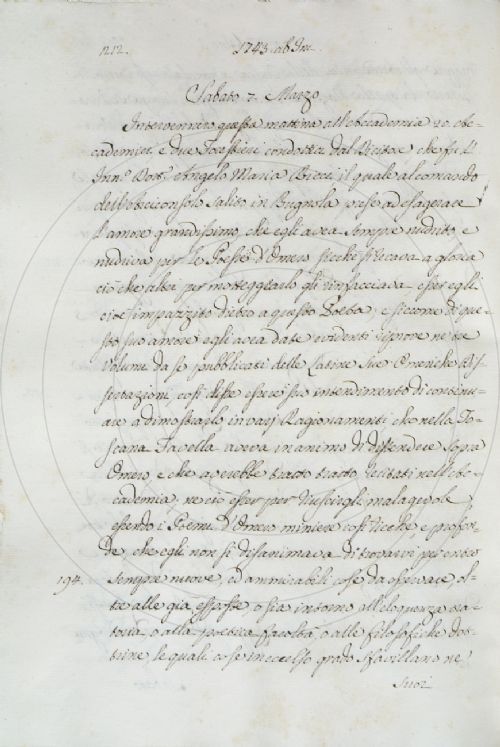 212. 1743. ab Inc.
Sabato 2 Marzo
Intervennero questa mattina all'Accademia 20. Ac-
cademici, e due Forestieri condotti dal Rettore, che fu l'
Inn.º Dott. Angelo Maria Ricci, il quale al comando
dell'Arciconsolo salito in Bugnola prese ad esagerare
l'amore grandissimo, che egli avea sempre nudrito, e
nudriva per le Poesie d'Omero sicchè si recava a gloria
ciò che altri per motteggiarlo gli rinfacciava esser egli
cioè impazzito dietro a questo Poeta; e siccome di que-
sto suo amore egli avea date evidenti riprove ne tre
Volumi da se pubblicati delle Latine sue Omeriche Dis-
sertazioni, così disse essere suo intendimento di continu-
are a dimostrarlo in varj Ragionamenti che nella To-
scana Favella aveva in animo di distendere sopra
Omero, e che averebbe tratto tratto recitati nell'Ac-
cademia ne ciò esser per riuscirgli malagevole
essendo i Poemi d'Omero miniere così ricche, e profon-
de, che egli non si disanimava di trovarvi per entro
194. sempre nuove, ed ammirabili cose da osservare ol-
tre alle già esposte, o sia intorno all'eloquenza ora-
toria, o alla poetica facoltà, o alle filosofiche dot-
trine, le quali cose in eccelso grado sfavillano ne
suoi